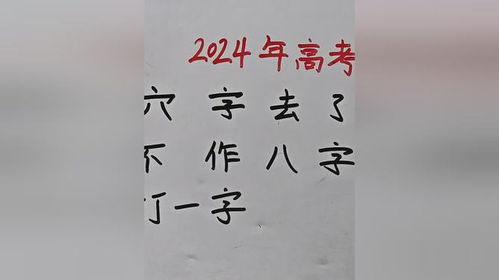 2024年高考
穴字去了
不作八字
打一字